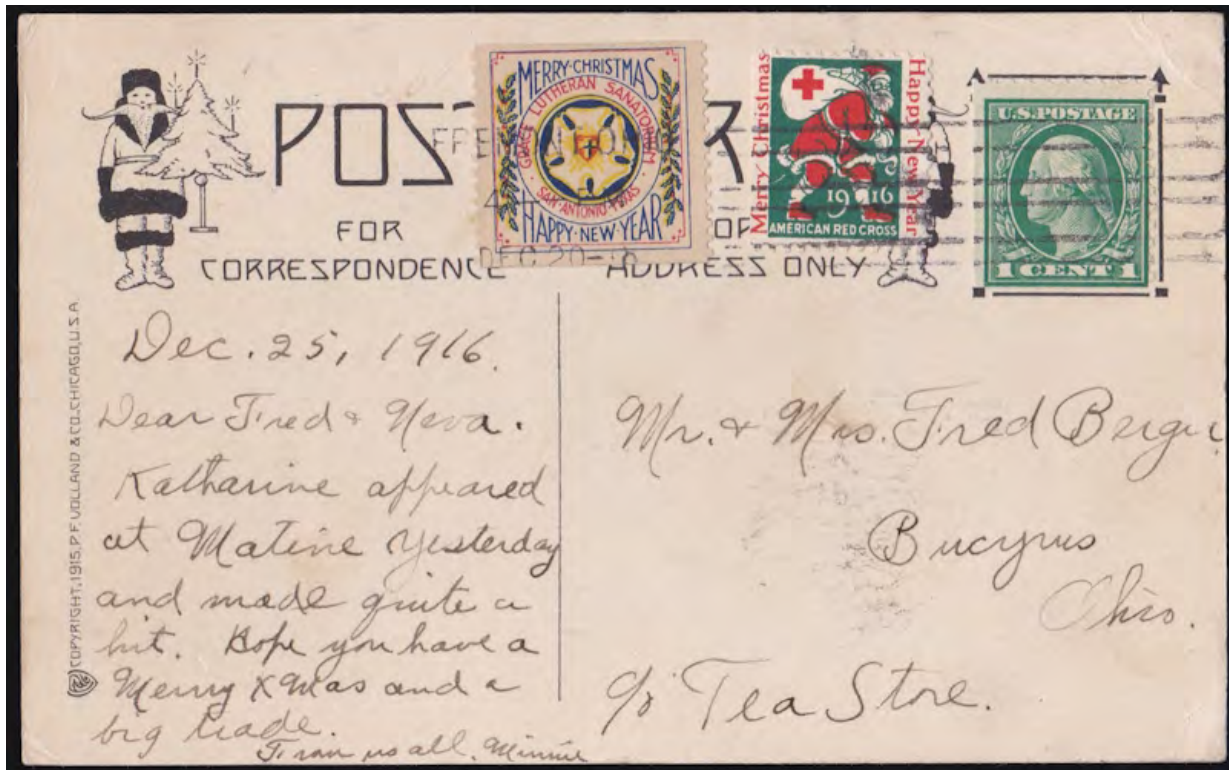 MERRY·CHRISTMAS
GRACE LUTHERAN SANATORIUM
SAN·ANTONIO·TEXAS
HAPPY·NEW·YEAR
Merry Christmas
Happy New Year
1916
AMERICAN RED CROSS
U.S. POSTAGE
1 CENT 1
POS
FOR
CORRESPONDENCE
ADDRESS ONLY
DEC 20
COPYRIGHT, 1915, P. F. VOLLAND & CO. CHICAGO, U.S.A.
Dec. 25, 1916.
Dear Fred & Neva.
Katharine appeared
at Matine yesterday
and made quite a
hit. Hope you have a
Merry XMas and a
big trade.
From us all, Minnie
Mr. & Mrs. Fred Berger,
Bucyrus
Ohio.
c/o Tea Store.